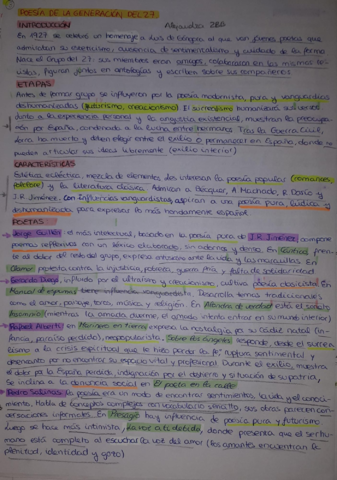 POESÍA DE LA GENERACIÓN DEL 27
INTRODUCCIÓN
En 1927 se celebra un homenaje a Luis de Góngora al que van jóvenes poetas que
admiraban su esteticismo, ausencia de sentimentalismo y cuidado de la forma
Nace el Grupo del 27. Sus miembros eran amigos, colaboraban en las mismas re-
vistas, figuran juntos en antologías y escriben sobre sus compañeros
ETAPAS
Antes de formar grupo se influyeron por la poesía modernista, pura y vanguardias
deshumanizadas (futurismo, creacionismo) El surrealismo humanizará sus versos
junto a la experiencia personal y la angustia existencial, muestran la preocupa-
ción por España, condenando a la lucha entre hermanos Tras la Guerra Civil,
Lorca ha muerto y deben elegir entre el exilio o permanecer en España, donde no
pueden articular sus ideas libremente (exilio interior)
CARACTERÍSTICAS
Estética ecléctica, mezcla de elementos. Les interesan la poesía popular (romancero,
folclore) y la literatura clásica. Admiran a Bécquer, A Machado, R Darío y
J.R. Jiménez, con influencias vanguardistas, aspiran a una poesía pura, lúdica y
deshumanizada para expresar lo más hondamente español
POETAS
Jorge Guillén es más intelectual, basado en la poesía pura de J.R. Jiménez compone
poemas reflexivos con un léxico elaborado, sin adornos y denso. En Cántico, frente
al dolor del resto del grupo, expresa entusiasmo ante la vida y las maravillas. En
Clamor protesta contra la injusticia, pobreza, guerra, crisis y falta de solidaridad
Gerardo Diego, influido por el ultraísmo y creacionismo, cultiva poesía clasicista. En
Manual de espumas tiene influencia vanguardista. Desarrolla temas tradicionales
como el amor, paisaje, toros, música y religión. En Alondra de verdad está el soneto
Insomnio (mientras la amada duerme, el amado intenta entrar en su mundo interior)
Rafael Alberti en Marinero en tierra expresa la nostalgia por su Cádiz natal (in-
fancia, paraíso perdido), neopopularista. Sobre los ángeles responde, desde el surrea-
lismo a la crisis espiritual que le hizo perder la fe, ruptura sentimental y
disgustado por no encontrar su vocación vital y profesional Durante el exilio, muestra
el dolor por la España perdida, indignación por el destierro y situación de su patria,
Se inclina a la denuncia social en El poeta en la calle
Pedro Salinas, la poesía era un modo de encontrar sentimientos, la vida y el conoci-
miento, Habla de conceptos complejos con vocabulario sencillo, sus obras parecen con-
versaciones informales. En Presagios hay influencia de poesía pura y futurismo
Luego se hace más intimista, La voz a ti debida, donde presenta que el ser hu-
mano está completo al escuchar la voz del amor (los amantes encuentran la
plenitud, identidad y gozo)